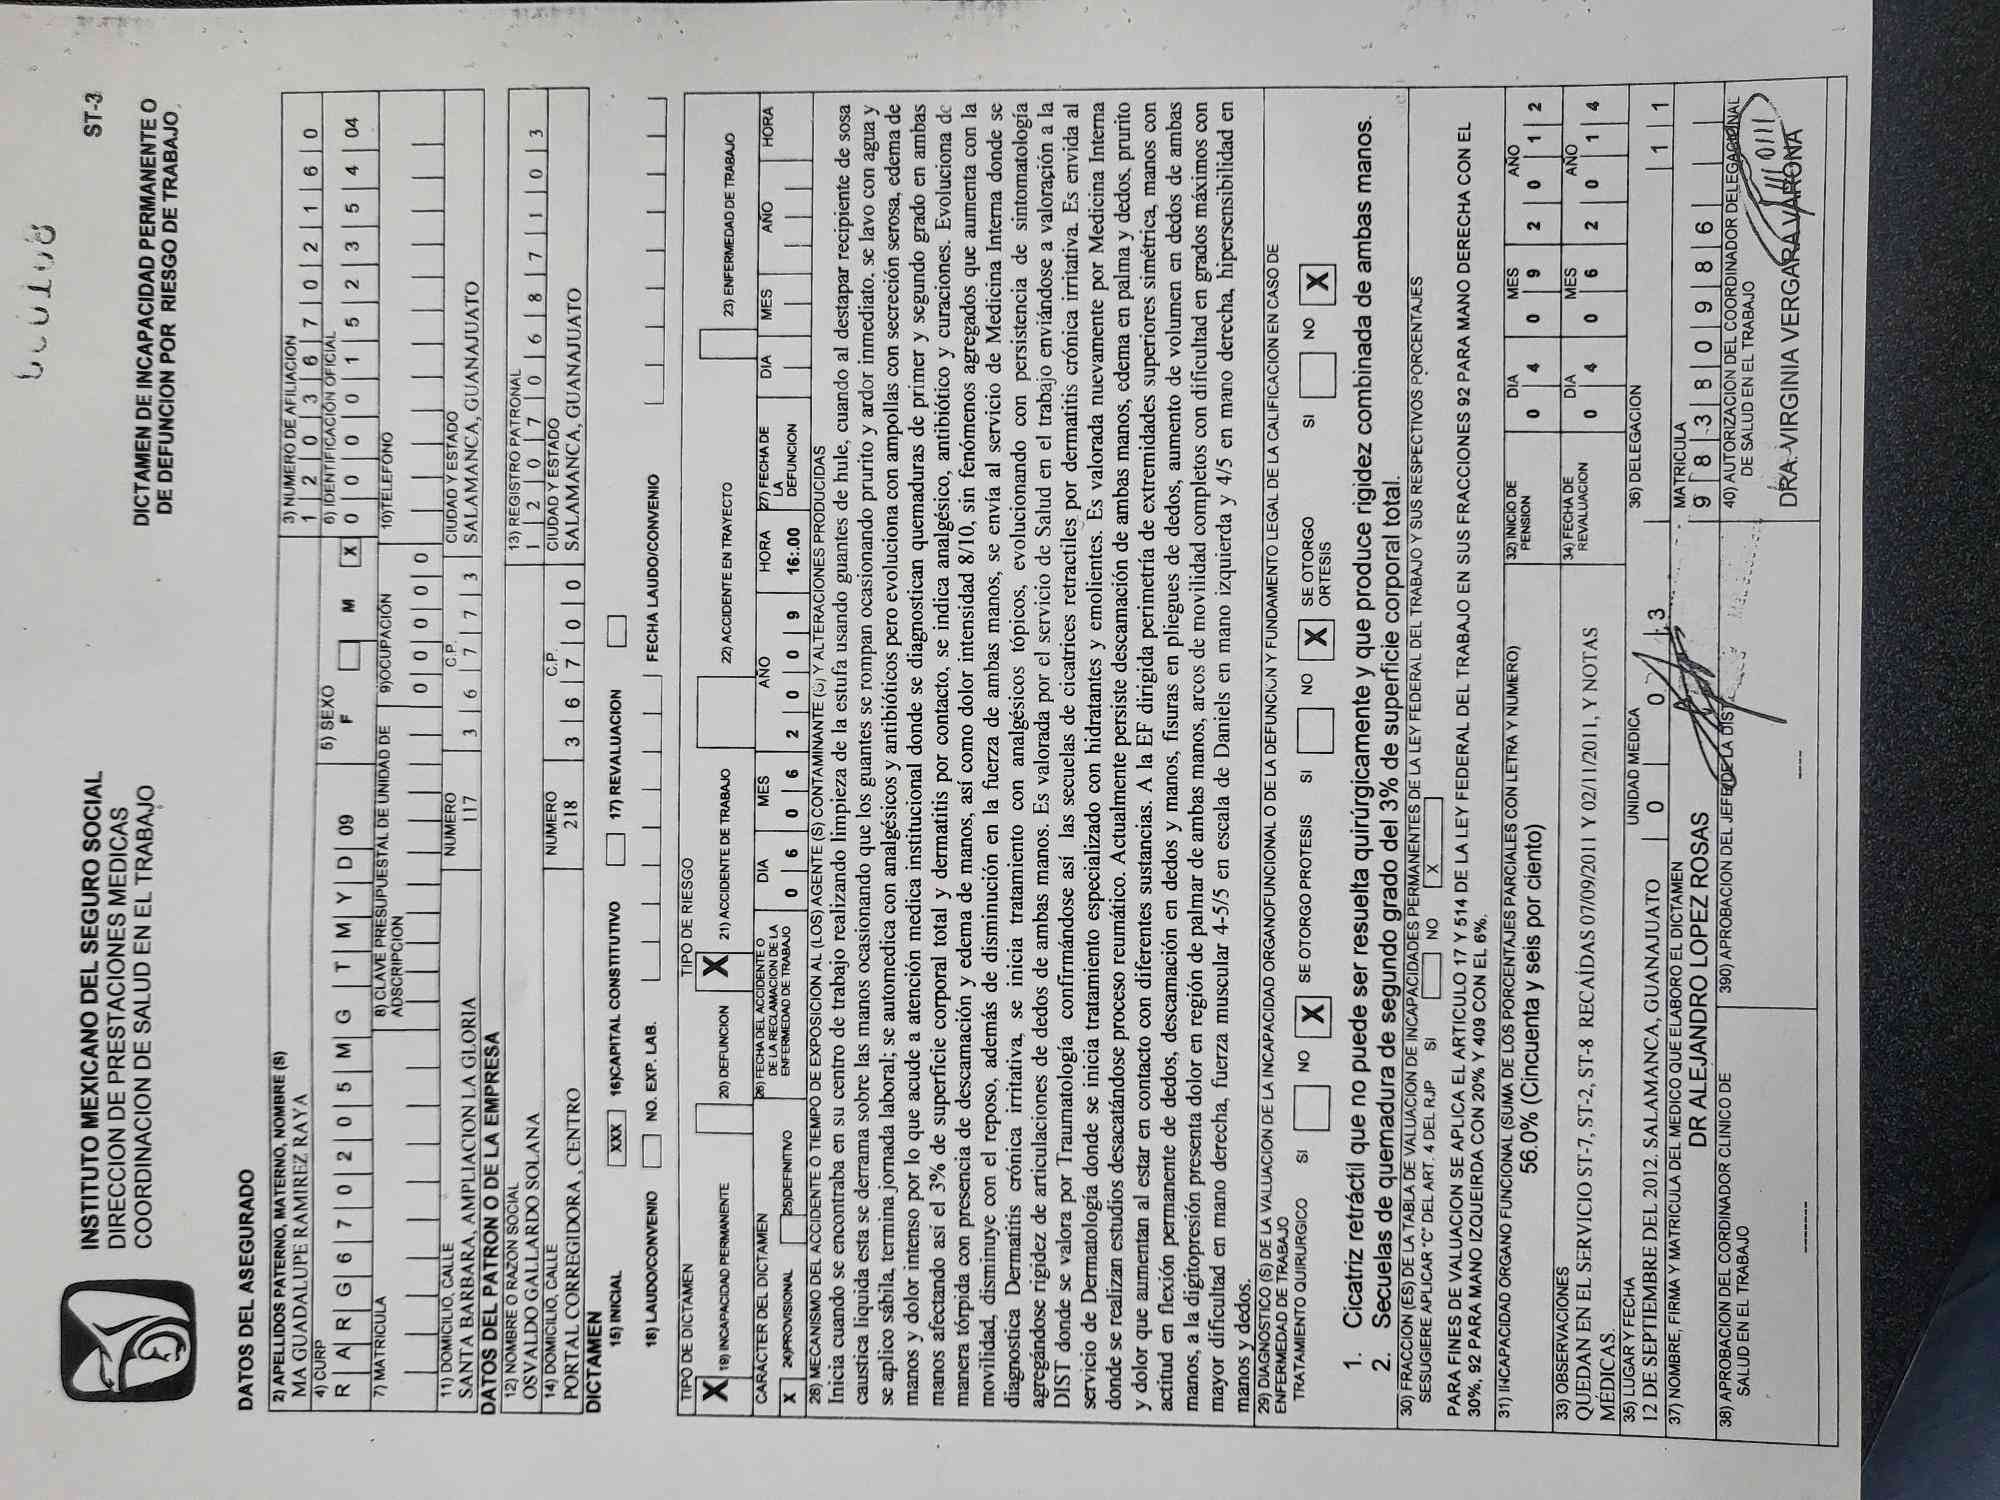 INSTITUTO MEXICANO DEL SEGURO SOCIAL
DIRECCION DE PRESTACIONES MEDICAS
COORDINACION DE SALUD EN EL TRABAJO
ST-3
DICTAMEN DE INCAPACIDAD PERMANENTE O
DE DEFUNCION POR RIESGO DE TRABAJO
DATOS DEL ASEGURADO
2) APELLIDOS PATERNO, MATERNO, NOMBRE (S)
MA GUADALUPE RAMIREZ RAYA
3) NUMERO DE AFILIACION
1 2 0 3 6 7 0 2 1 6 0
4) CURP
R A R G 6 7 0 2 0 5 M G T M Y D 09
5) SEXO
F M X
6) IDENTIFICACIÓN OFICIAL
0 0 0 0 1 5 2 3 5 4 04
7) MATRICULA
8) CLAVE PRESUPUESTAL DE UNIDAD DE
ADSCRIPCION
9)OCUPACIÓN
0 0 0 0 0
10)TELEFONO
11) DOMICILIO, CALLE NUMERO C.P. CIUDAD Y ESTADO
SANTA BARBARA, AMPLIACION LA GLORIA 117 3 6 7 7 3 SALAMANCA, GUANAJUATO
DATOS DEL PATRON O DE LA EMPRESA
12) NOMBRE O RAZON SOCIAL
OSVALDO GALLARDO SOLANA
13) REGISTRO PATRONAL
1 2 0 7 0 6 8 7 1 0 3
14) DOMICILIO, CALLE NUMERO C.P. CIUDAD Y ESTADO
PORTAL CORREGIDORA , CENTRO 218 3 6 7 0 0 SALAMANCA, GUANAJUATO
DICTAMEN
15) INICIAL XXX 16)CAPITAL CONSTITUTIVO 17) REVALUACION
18) LAUDO/CONVENIO NO. EXP. LAB. FECHA LAUDO/CONVENIO
TIPO DE DICTAMEN TIPO DE RIESGO
X 19) INCAPACIDAD PERMANENTE 20) DEFUNCION X 21) ACCIDENTE DE TRABAJO 22) ACCIDENTE EN TRAYECTO 23) ENFERMEDAD DE TRABAJO
CARÁCTER DEL DICTAMEN
X 24)PROVISIONAL 25)DEFINITIVO
26) FECHA DEL ACCIDENTE O
DE LA RECLAMACION DE LA
ENFERMEDAD DE TRABAJO
DIA MES AÑO HORA
0 6 0 6 2 0 0 9 16:00
27) FECHA DE
LA
DEFUNCION
DIA MES AÑO HORA
28) MECANISMO DEL ACCIDENTE O TIEMPO DE EXPOSICION AL (LOS) AGENTE (S) CONTAMINANTE (S) Y ALTERACIONES PRODUCIDAS
Inicia cuando se encontraba en su centro de trabajo realizando limpieza de la estufa usando guantes de hule, cuando al destapar recipiente de sosa
caustica liquida esta se derrama sobre las manos ocasionando que los guantes se rompan ocasionando prurito y ardor inmediato. se lavo con agua y
se aplico sábila, termina jornada laboral; se automedica con analgésicos y antibióticos pero evoluciona con ampollas con secreción serosa, edema de
manos y dolor intenso por lo que acude a atención medica institucional donde se diagnostican quemaduras de primer y segundo grado en ambas
manos afectando así el 3% de superficie corporal total y dermatitis por contacto, se indica analgésico, antibiótico y curaciones. Evoluciona de
manera tórpida con presencia de descamación y edema de manos, así como dolor intensidad 8/10, sin fenómenos agregados que aumenta con la
movilidad, disminuye con el reposo, además de disminución en la fuerza de ambas manos, se envía al servicio de Medicina Interna donde se
diagnostica Dermatitis crónica irritativa, se inicia tratamiento con analgésicos tópicos, evolucionando con persistencia de sintomatología
agregándose rigidez de articulaciones de dedos de ambas manos. Es valorada por el servicio de Salud en el trabajo enviándose a valoración a la
DIST donde se valora por Traumatología confirmándose así las secuelas de cicatrices retractiles por dermatitis crónica irritativa. Es envida al
servicio de Dermatología donde se inicia tratamiento especializado con hidratantes y emolientes. Es valorada nuevamente por Medicina Interna
donde se realizan estudios desacatándose proceso reumático. Actualmente persiste descamación de ambas manos, edema en palma y dedos, prurito
y dolor que aumentan al estar en contacto con diferentes sustancias. A la EF dirigida perimetría de extremidades superiores simétrica, manos con
actitud en flexión permanente de dedos, descamación en dedos y manos, fisuras en pliegues de dedos, aumento de volumen en dedos de ambas
manos, a la digitopresión presenta dolor en región de palmar de ambas manos, arcos de movilidad completos con dificultad en grados máximos con
mayor dificultad en mano derecha, fuerza muscular 4-5/5 en escala de Daniels en mano izquierda y 4/5 en mano derecha, hipersensibilidad en
manos y dedos.
29) DIAGNOSTICO (S) DE LA VALUACION DE LA INCAPACIDAD ORGANOFUNCIONAL O DE LA DEFUNCIÓN Y FUNDAMENTO LEGAL DE LA CALIFICACION EN CASO DE
ENFERMEDAD DE TRABAJO
TRATAMIENTO QUIRURGICO SI NO X SE OTORGO PROTESIS SI NO X SE OTORGO
ORTESIS SI NO X
1. Cicatriz retráctil que no puede ser resuelta quirúrgicamente y que produce rigidez combinada de ambas manos.
2. Secuelas de quemadura de segundo grado del 3% de superficie corporal total.
30) FRACCION (ES) DE LA TABLA DE VALUACION DE INCAPACIDADES PERMANENTES DE LA LEY FEDERAL DEL TRABAJO Y SUS RESPECTIVOS PORCENTAJES
SESUGIERE APLICAR "C" DEL ART. 4 DEL RJP SI NO X
PARA FINES DE VALUACION SE APLICA EL ARTICULO 17 Y 514 DE LA LEY FEDERAL DEL TRABAJO EN SUS FRACCIONES 92 PARA MANO DERECHA CON EL
30%, 92 PARA MANO IZQUIERDA CON 20% Y 409 CON EL 6%.
31) INCAPACIDAD ORGANO FUNCIONAL (SUMA DE LOS PORCENTAJES PARCIALES CON LETRA Y NUMERO)
56.0% (Cincuenta y seis por ciento)
32) INICIO DE
PENSION
DIA MES AÑO
0 4 0 9 2 0 1 2
33) OBSERVACIONES
QUEDAN EN EL SERVICIO ST-7, ST-2, ST-8 RECAÍDAS 07/09/2011 Y 02/11/2011, Y NOTAS
MÉDICAS.
34) FECHA DE
REVALUACION
DIA MES AÑO
0 4 0 6 2 0 1 4
35) LUGAR Y FECHA
12 DE SEPTIEMBRE DEL 2012. SALAMANCA, GUANAJUATO
UNIDAD MEDICA
0 0 3
36) DELEGACION
1 1
37) NOMBRE, FIRMA Y MATRICULA DEL MEDICO QUE ELABORO EL DICTAMEN
DR ALEJANDRO LOPEZ ROSAS
MATRICULA
9 8 3 8 0 9 8 6
38) APROBACION DEL CORDINADOR CLINICO DE
SALUD EN EL TRABAJO
------
390) APROBACION DEL JEFE DE LA DIST
----
40) AUTORIZACION DEL COORDINADOR DELEGACIONAL
DE SALUD EN EL TRABAJO
DRA. VIRGINIA VERGARA VARONA